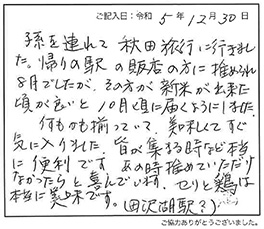 ご記入日：令和 5年 12月 30日
孫を連れて 秋田旅行に行きまし
た。帰りの駅の販店の方に推められ
8月でしたが、その方が新米が出来た
頃が良いと 10月頃に届くようにしました。
何もかも揃っていて、美味しくてすぐ
気に入りました。皆が集まる時など本当
に便利です あの時推めていただけ
なかったらと喜んでいます。せりと鶏は
本当に美味です。(田沢湖駅？)
ご協力ありがとうございました。